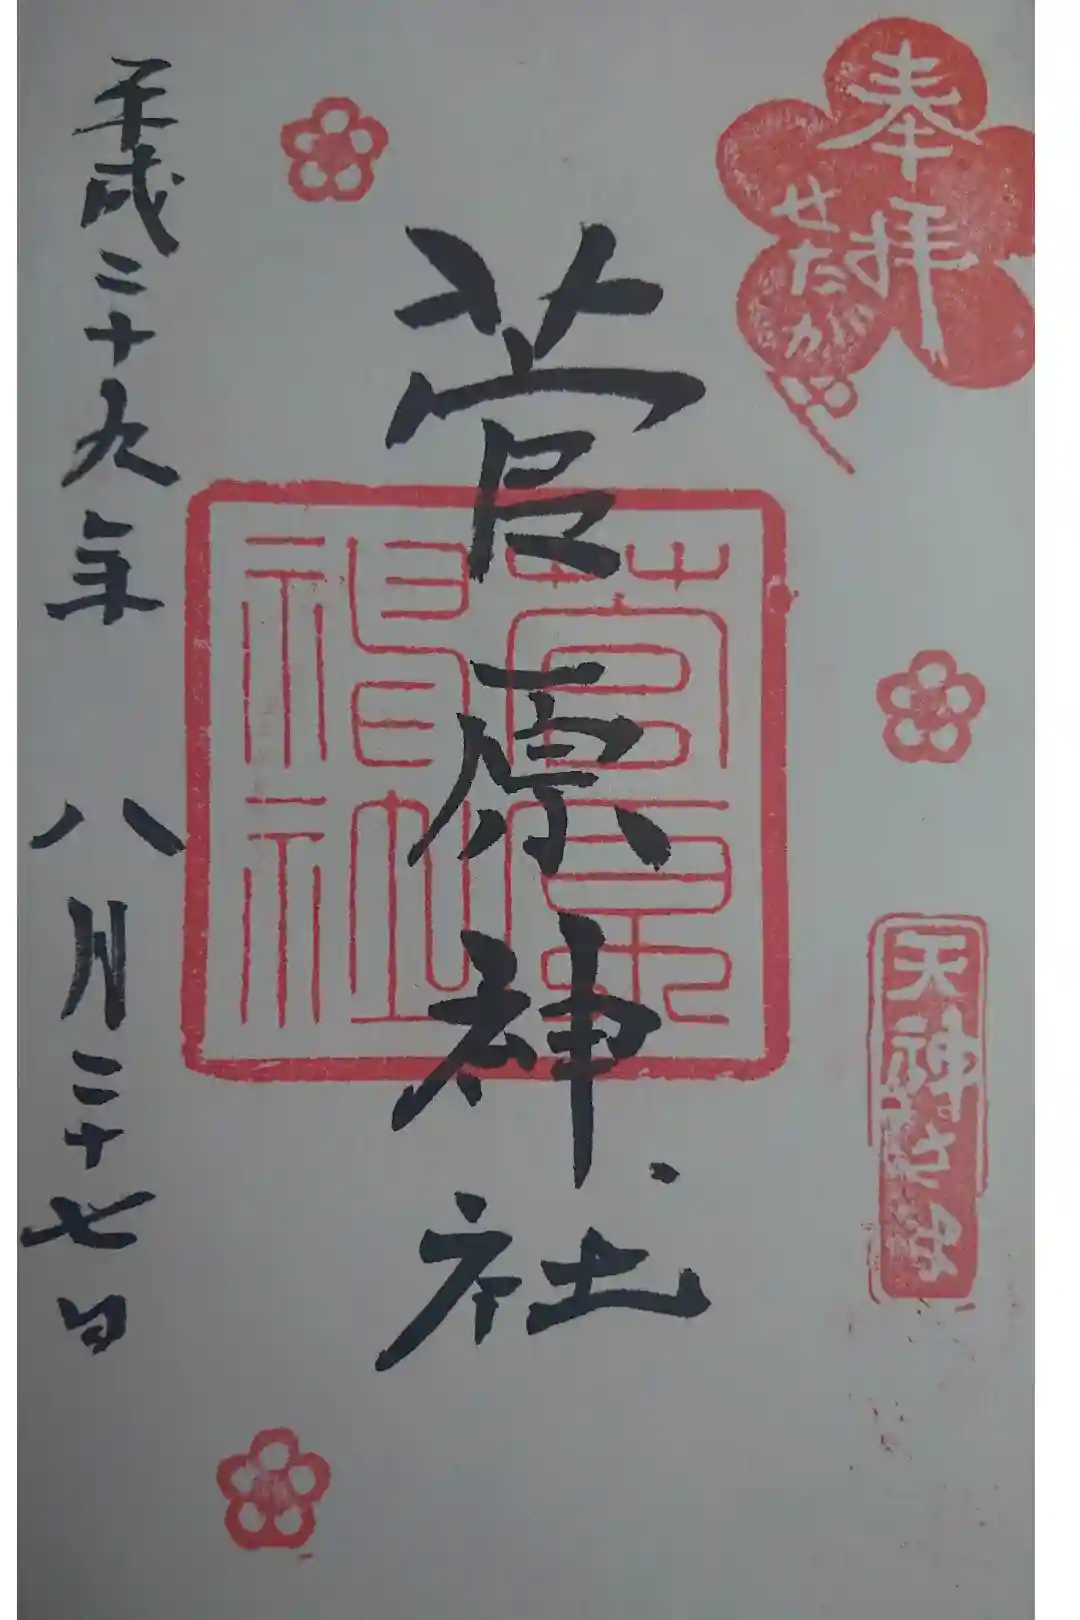 奉拝
せたがや
天神さま
菅原神社
菅原神社
平成二十九年 八月二十七日